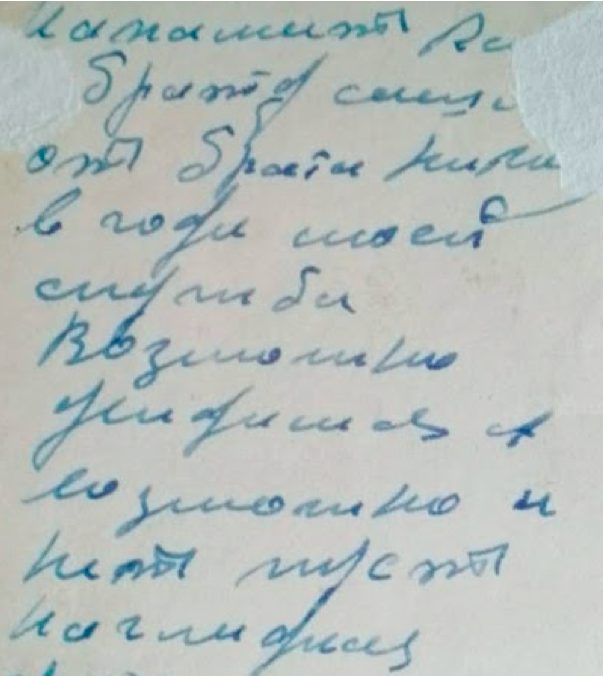 Напамят
Брату
от брата
в годы моей
службы
Возможно
увидимся а
возможно и
нет пуст